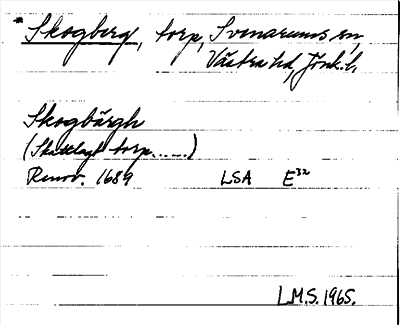 * Skogberg, torp, Svenarums sn,
Västra hd, Jönk. l.
Skogbärgh
(Skattlagt torp......)
Renov. 1689 LSA E32
L.M.S. 1965.